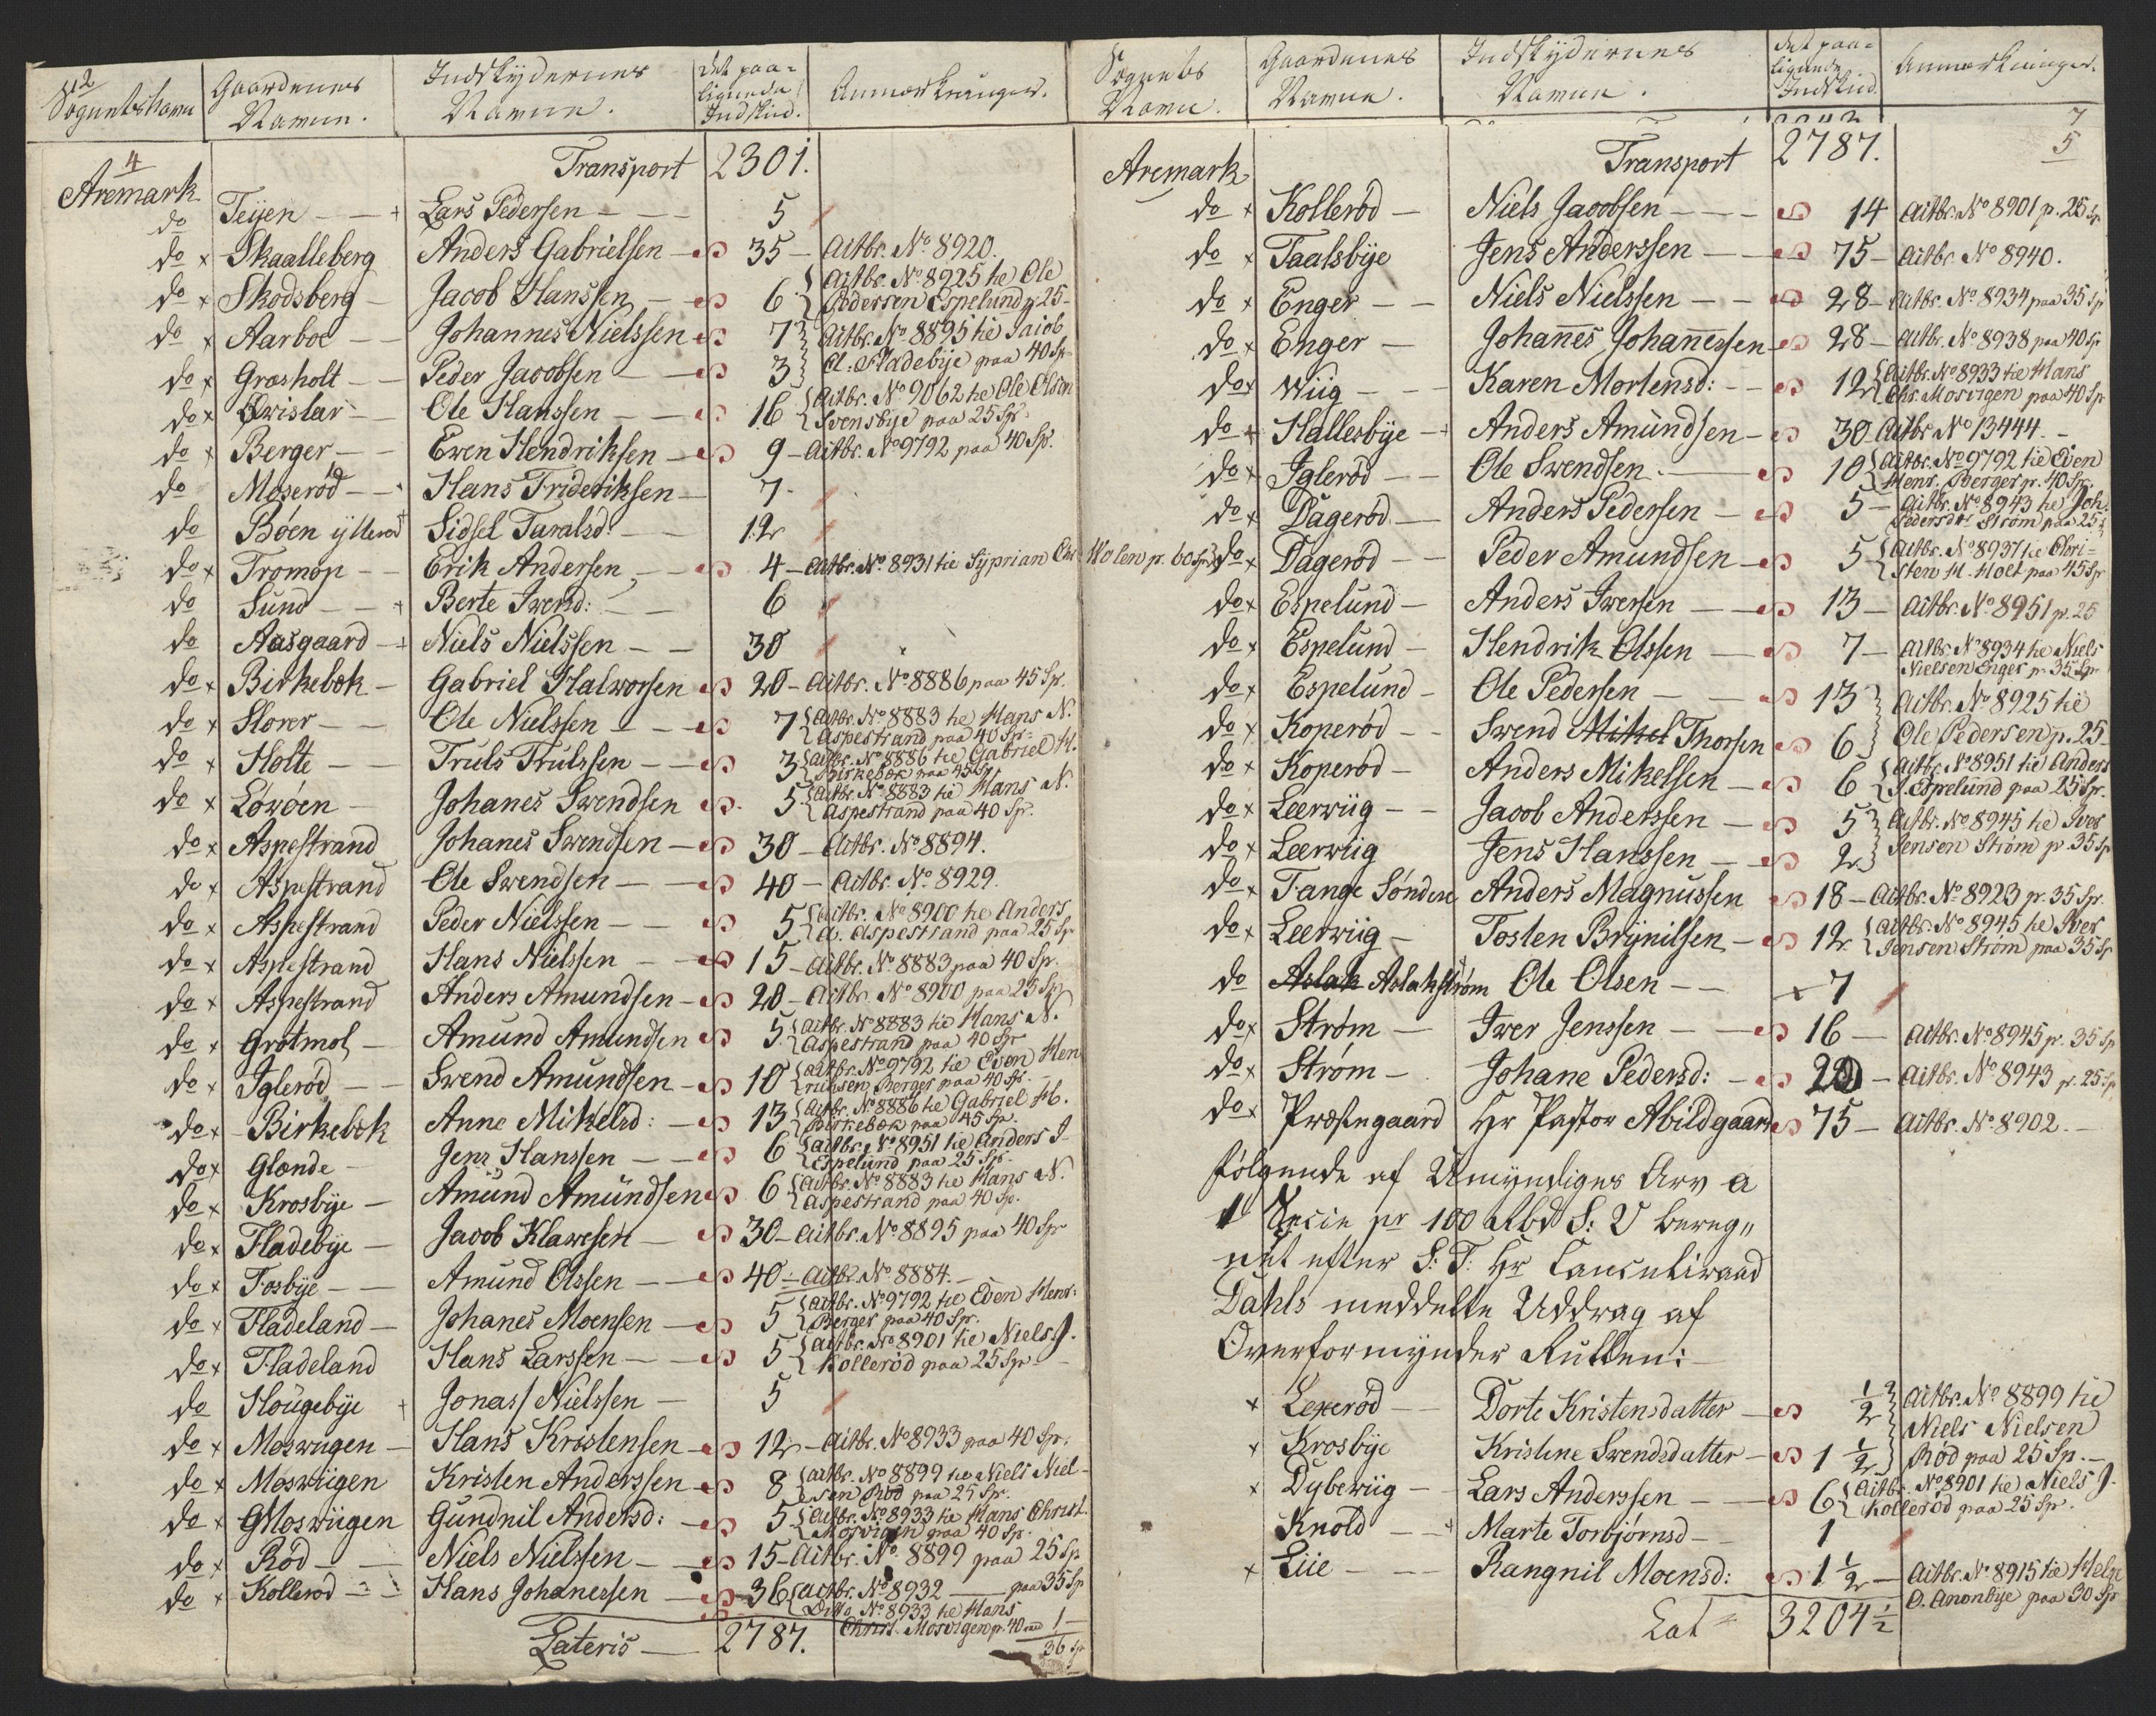 12
Sognets Navn Gaardenes Navne. Indskydernes Navne. Det paaligende Indskud. Anmærkninger.
4
Aremark Transport 2301.
do Teijen + Lars Pedersen 5
do x Skaalleberg Anders Gabrielsen 35 — Actbr. No 8920.
do x Skodsberg Jacob Hanssen 6 Actbr. No 8925 tie Ole
Pedersen Espelund p 25
do x Aarboe Johannes Nielssen 7 Actbr. No 8895 tie Jacob
do x Græsholt Peder Jacobsen 3 Cl. Fladebye paa 40 Sp
do x Qvislar Ole Hanssen 16 Actbr. No 9062 tie Ole Olsen
Svensbye paa 25 Sp.
do x Berger Even Hendriksen 9 — Actbr. No 9792 paa 40 Sp.
do Moserød Hans Frideriksen 7
do Bøen ytterød Sidsel Taralsd. 12
do x Tromop Erik Andersen 4 — Actbr. No 8931 tie Syprian Chr Holen p. 60 Sp
do Sund + Berte Iversd: 6
do Aasgaard + Niels Nielssen 30
do x Birkebøk Gabriel Halworsen 20 — Actbr. No 8886 paa 45 Sp.
do x Slorer Ole Nielssen 7 Actbr. No 8883 tie Hans N.
Aspestrand paa 40 Sp.
do x Holte Truls Trulssen 3 Actbr. No 8886 tie Gabriel H.
Birkebøk paa 45 Sp
do x Løvøen Johanes Swendsen 5 Actbr. No 8883 tie Hans N.
Aspestrand paa 40 Sp.
do x Aspestrand Johanes Swendsen 30 — Actbr. No 8894.
do x Aspestrand Ole Swendsen 40 — Actbr. No 8929.
do x Aspestrand Peder Nielssen 5 Actbr. No 8900 tie Anders
A. Aspestrand paa 25 Sp
do x Aspestrand Hans Nielssen 15 — Actbr. No 8883 paa 40 Sp.
do x Aspestrand Anders Amundsen 20 — Actbr. No 8900 paa 25 Sp
do x Grotmol Amund Amundsen 5 Actbr. No 8883 tie Hans N.
Aspestrand paa 40 Sp
do x Iglerød Swend Amundsen 10 Actbr. No 9792 tie Even Hen
riksen Berger paa 40 Sp.
do x Birkebøk Anne Mikelsd: 13 Actbr. No 8886 tie Gabriel H.
Birkebøk paa 45 Sp.
do x Glende Jens Hanssen 6 Actbr. No 8951 tie Anders I
Espelund paa 25 Sp.
do x Krosbye Amund Amundsen 6 Actbr. No 8883 tie Hans N.
Aspestrand paa 40 Sp.
do x Fladebye Jacob Klavesen 30 — Actbr. No 8895 paa 40 Sp
do x Fosbye Amund Olssen 40 — Actbr. No 8884.
do x Fladeland Johanes Moensen 5 Actbr. No 9792 tie Even Henr:
Berger paa 40 Sp.
do x Fladeland Hans Larssen 5 Actbr. No 8901 tie Niels J.
Kollerød paa 25 Sp
do Hougebye + Jonas Nielssen 5
do x Moswiigen Hans Kristensen 12 — Actbr. No 8933 paa 40 Sp.
do x Moswiigen Kristen Anderssen 8 Actbr. No 8899 tie Niels Niel-
sen Rød paa 25 Sp.
do x Moswiigen Gundnil Andersd: 5 Actbr. No 8933 tie Hans Christ.
Mosvigen paa 40 Sp.
do x Rød Niels Nielssen 15 — Actbr. No 8899 paa 25 Sp
do x Kollerød Hans Johanessen 36 Actbr. No 8932 — paa 35 Sp
Ditto No 8933 tie Hans
Christ. Mosvigen p. 40 1
36 Sp
Lateris 2787.
Sognets Navn. Gaardenes Navne. Indskydernes Navne. Det paaligende Indskud. Anmærkninger.
7
5
Aremark Transport 2787.
do x Kollerød Niels Jacobsen 14 Actbr. No 8901 p. 25 Sp
do x Taalsbye Jens Anderssen 75 — Actbr. No 8940.
do x Enger Niels Nielssen 28 — Actbr. No 8934 paa 35 Sp
do x Enger Johannes Johannessen 28 — Actbr. No 8938 paa 40 Sp
do x Wiig Karen Mortensd: 12 Actbr. No 8933 tie Hans
Chr. Mosvigen paa 40 Sp
do x Hallesbye Anders Amundsen 30 Actbr No 13444.
do x Iglerød Ole Swendsen 10 Actbr. No 9792 tie Even
Henr. Berger p. 40 Sp.
do x Dagerød Anders Pedersen 5 — Actbr. No 8943 tie Joh.
Pedersdtr Strøm paa 25
do x Dagerød Peder Amundsen 5 Actbr. No 8937 tie Chri-
sten H. Holt paa 45 Sp
do x Espelund Anders Iwersen 13 — Actbr. No 8951 p. 25
do x Espelund Hendrik Olssen 7 — Actbr No 8934 tie Niels
Nielsen Enger p. 35 Sp
do x Espelund Ole Pedersen 13 Actbr. No 8925 tie
do x Koperød Swend Mikel Thorsen 6 Ole Pedersen p. 25
do x Koperød Anders Mikelssen 6 Actbr. No 8951 tie Anders
I. Espelund paa 25 Sp.
do x Leerwiig Jacob Anderssen 5 Actbr. No 8945 tie Iver
do x Leerwiig Jens Hanssen 2 Jensen Strøm p 35 Sp
do x Tange Søndre Anders Magnussen 18 — Actbr. No 8923 p. 35 Sp.
do x Leerwiig Tosten Brynilsen 12 Actbr. No 8945 tie Iver
Jensen Strøm paa 35 Sp
do Aslak Aslakstrøm Ole Olsen x 7
do x Strøm Iwer Jenssen 16 — Actbr. No 8945 p. 35 Sp
do x Strøm Johane Pedersd: 20 — Actbr. No 8943 p. 25 Sp
do x Præstegaard Hr Pastor Abildgaard 75 — Actbr. No 8902.
følgende af Umyndiges Arv a
1 Specie pr 100 Rbd S: V bereg„
net efter S: T: Hr Cancelliraad
Dahls meddelte Uddrag af
Overformynder Rullen:
x Lexerød Dorte Kristensdatter 1/2 Actbr. No 8899 tie
Niels Nielsen
x Krosbye Kristine Swendsdatter 1 1/2 Rød paa 25 Sp.
x Dybewiig Lars Anderssen 6 Actbr. No 8901 tie Niels J.
Kollerød paa 25 Sp.
Knold + Marte Torbjørnsd 1
x Liie Rangnil Moensd: 1 1/2 — Actbr. No 8915 tie Helge
O. Anonbye paa 30 Sp
Lat 3204 1/2